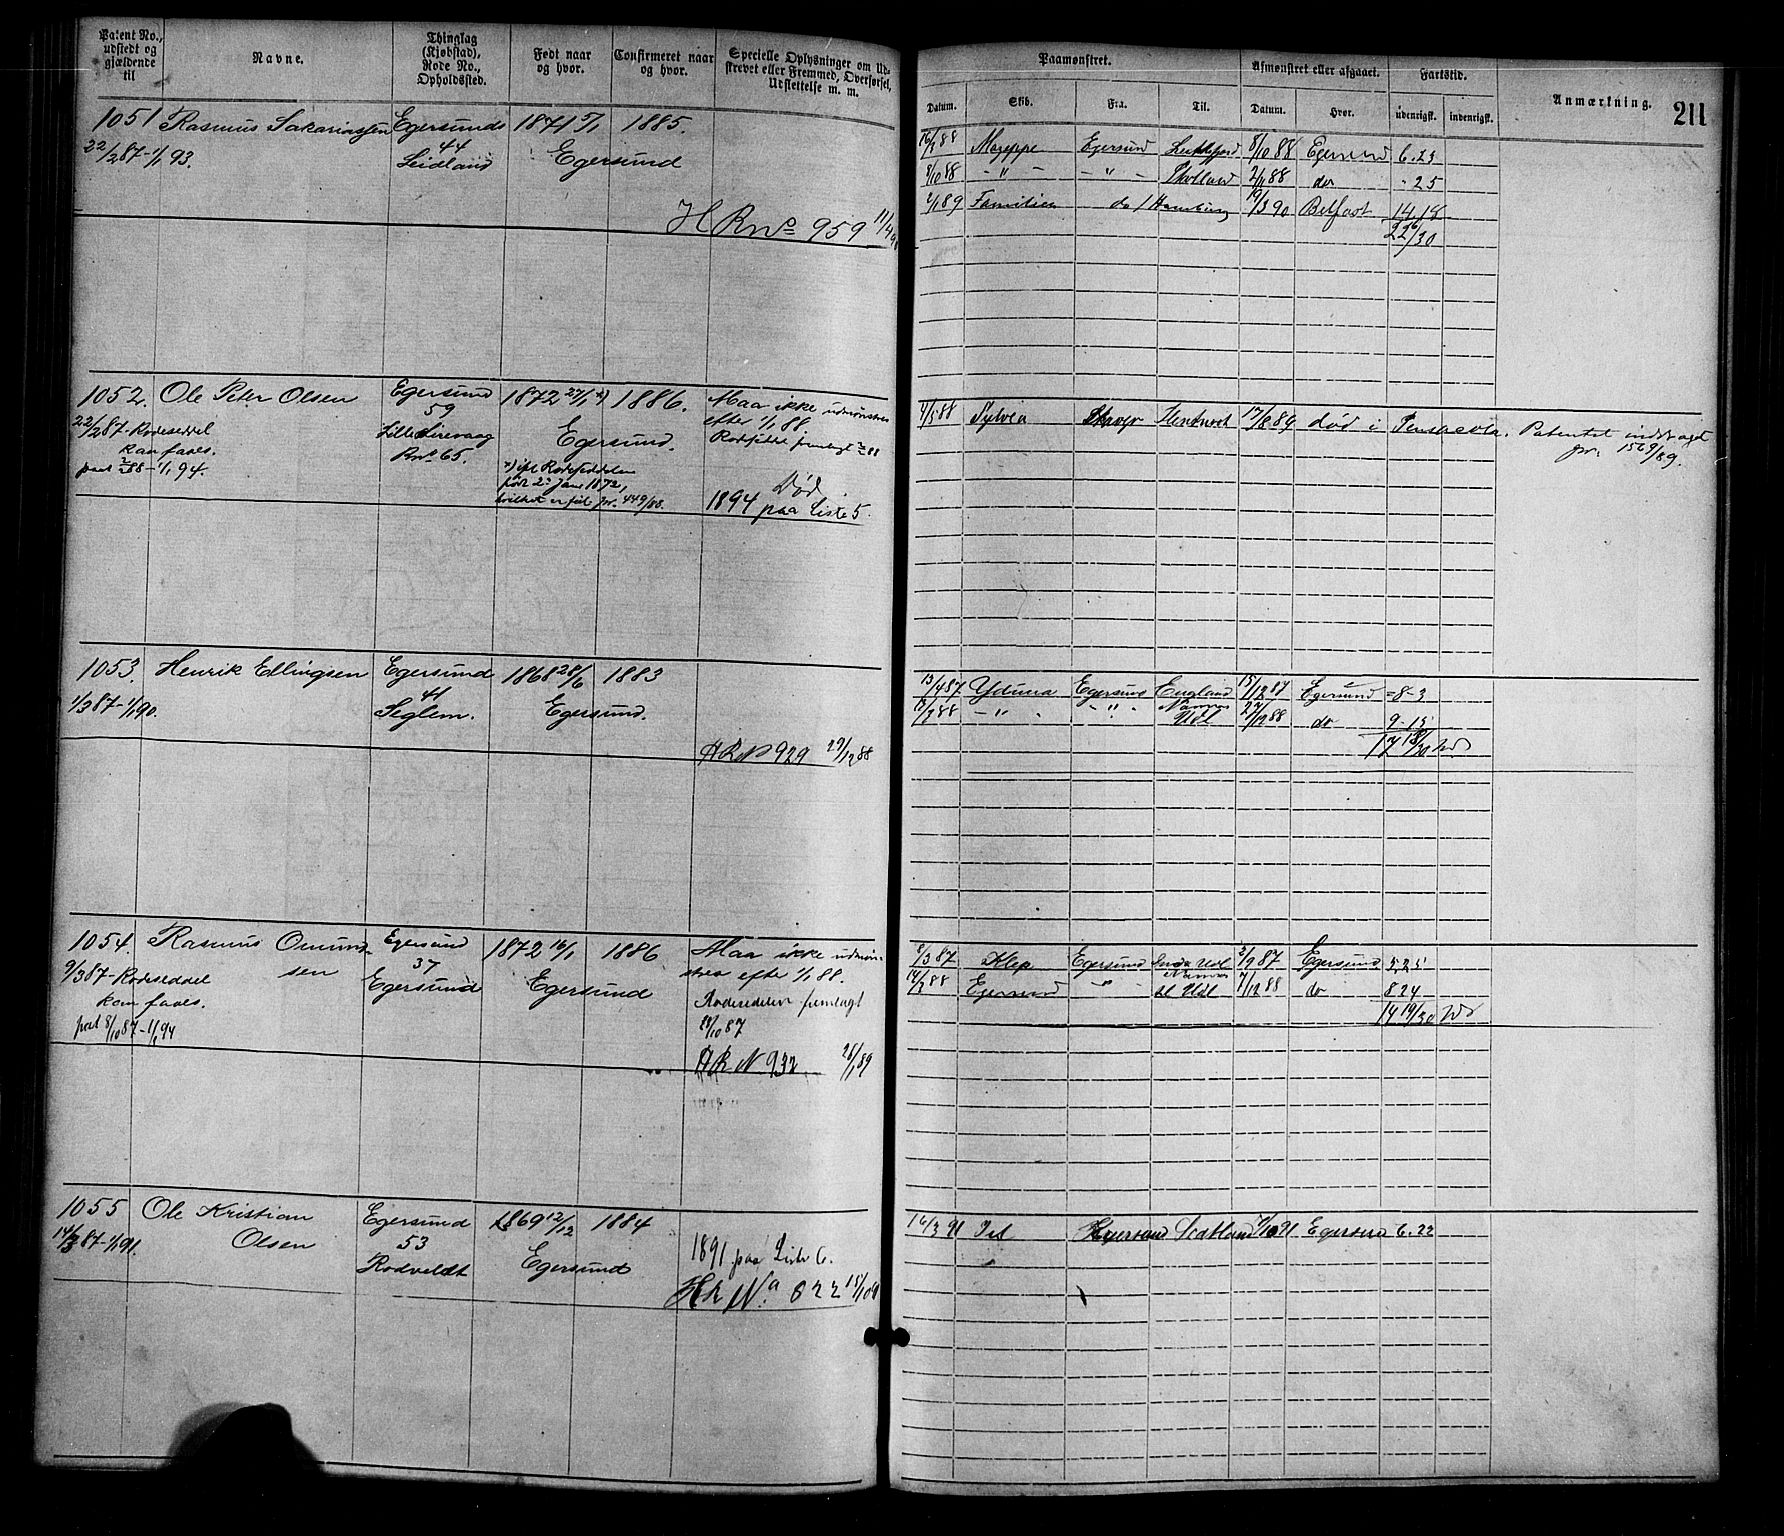 Patent No., udstedt og gjældende til
Navne.
Thinglag (Kjøbstad), Rode No., Opholdssted.
Fedt naar og hvor.
Confirmeret naar og hvor.
Specielle Oplysninger om Udskrevet eller Fremmed, Overførsel, Udslettelse m. m.
Paamønstret.
Afmønstret eller afgaaet.
Fartstid.
Anmærkning.
211
Datum.
Skib.
Fra.
Til.
Datum.
Hvor.
udenrigsk.
indenrigsk.
1051 Rasmus Sakariassen Egersund 1871 5/1 1885.
22/2 87 - 1/1 93.
44
Leidland
Egersund
H R No 959 11/4 90
16/3 88 Egersund 8/10 88 Egersund 6.23
8/10 88 - " - - " - Skotland 2/11 88 do - 25
2/1 89 Familien do Hamburg 19/3 90 Belfast 14 18
22 6/30
1052. Ole Peter Olsen Egersund 1872 27/1 *) 1886.
59
22/2 87 - Rodeseddel
kan faaes.
Lille Sirevaag
Rno 65.
Egersund.
- 1/1 94.
*) ifl Rodeseddelen
født 2den Jan 1872,
449/88.
Maa ikke udmønstres
efter 1/1 88.
Død
1894 paa Liste 5.
4/5 88 Sylvia 17/8 89 død i Pensacola. Patentet inddraget
jvr. 1569/89.
1053. Henrik Ellingsen Egersund 1868 28/6 1883
1/3 87 - 1/1 90.
41
Seglem.
Egersund.
H R No 929 29/12 88
13/4 87 Yduna Egersund England 15/12 87 Egersund = 8-3
13/3 88 - " - - " - Udl 27/12 88 do 9-15
17 18/30
1054. Rasmus Omundsen Egersund 1872 16/1 1886
37
9/3 87 - Rodeseddel
kan faaes.
Egersund
Egersund
8/10 87 - 1/1 94
Maa ikke udmønstres
efter 1/1 88.
Rodesedelen fremlagt
28/10 87
H R No 932 26/1 89
8/3 87 Klep Egersund 2/9 87 Egersund 5.25
14/3 88 Egersund - " - til Udl 7/12 88 do 8 24
14 19/30
1055 Ole Kristian Olsen Egersund 1869 12/12 1884
14/3 87 - 1/1 91.
53
Rodveldt
Egersund
1891 paa Liste 6.
H R No 822
16/3 91 Egersund 6.22